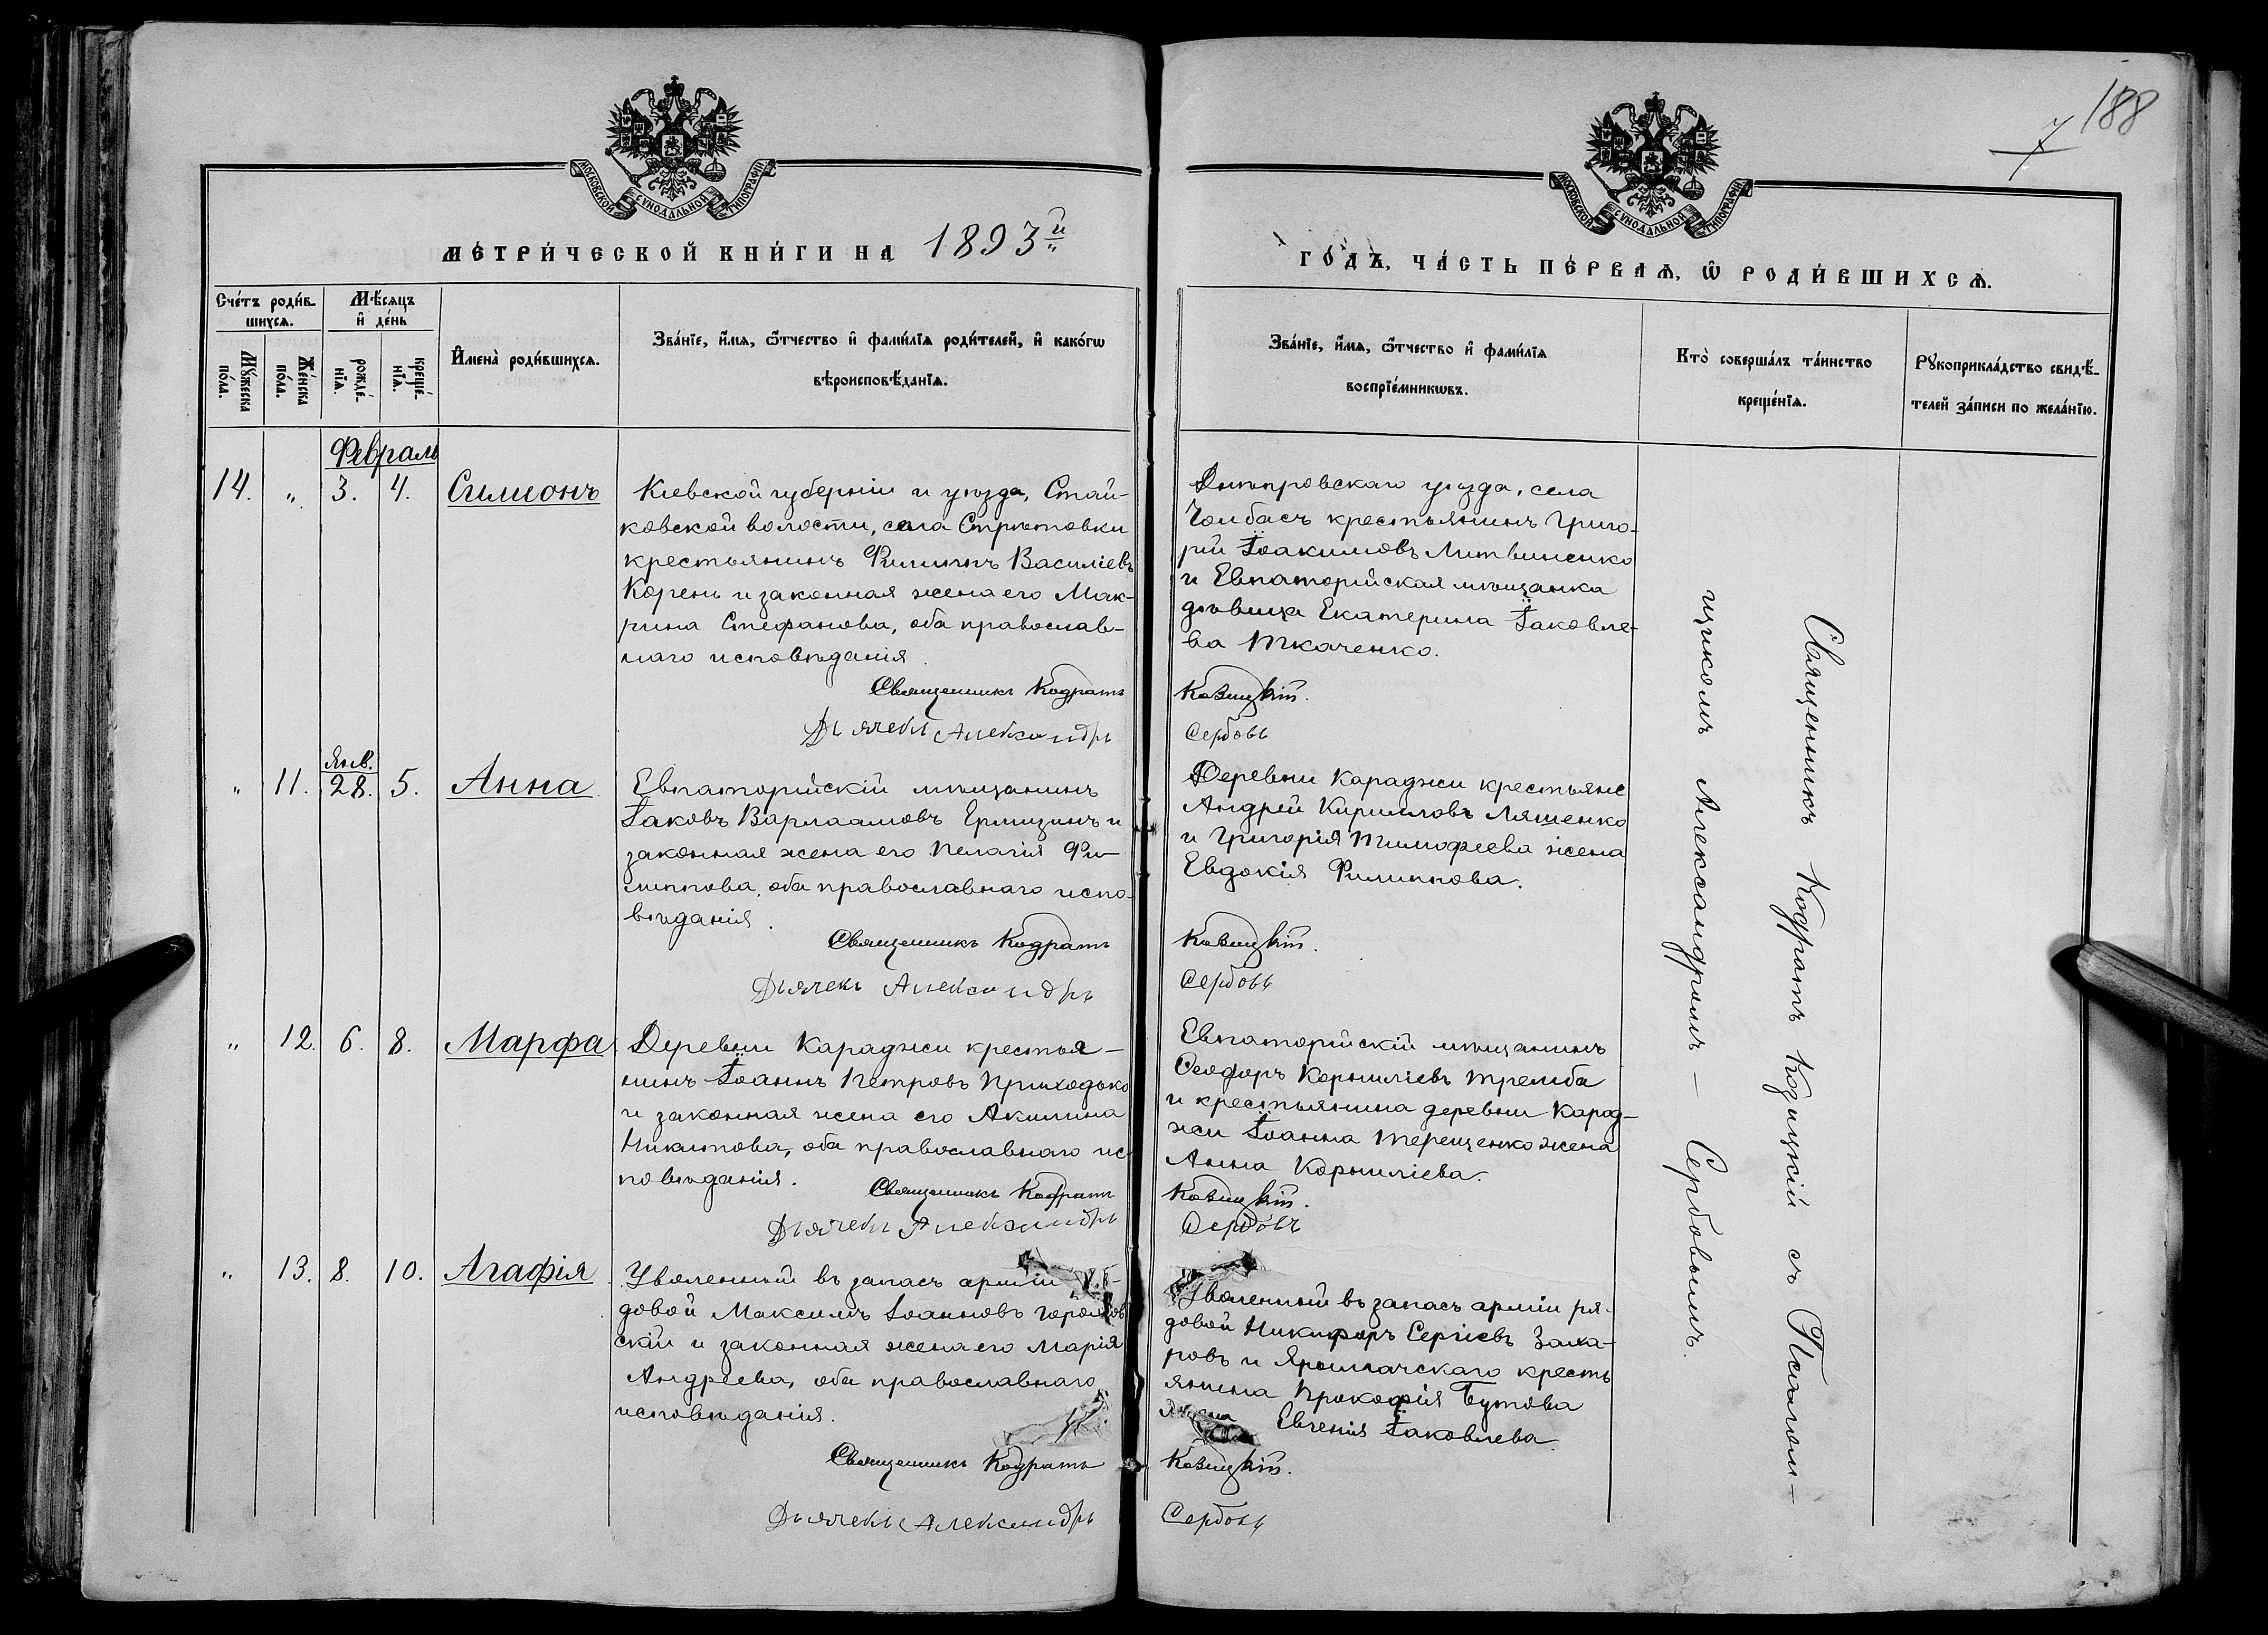 188
7
МОСКОВСКОЙ СѴНОДАЛЬНОЙ ТИПОГРАФІИ
МОСКОВСКОЙ СѴНОДАЛЬНОЙ ТИПОГРАФІИ
МЕТРИ́ЧЕСКОЙ КНИ́ГИ НА 1893й
ГО́ДЪ, ЧА́СТЬ ПЕ́РВАѦ, Ѡ҆ РОДИ́ВШИХСѦ.
Сче́тъ роди́в-
шихсѧ.
Мѣ́сѧцъ
и҆ де́нь
Мꙋ́жеска по́ла.
Же́нска по́ла.
рожде́-
нїѧ.
креще́-
нїѧ.
И҆мена̀ роди́вшихсѧ.
Зва́нїе, и҆́мѧ, ѻ҆́тчество и҆ фами́лїѧ роди́телей, и҆ како́гѡ
вѣроисповѣ́данїѧ.
Зва́нїе, и҆́мѧ, ѻ҆́тчество и҆ фами́лїѧ
воспрїе́мникѡвъ.
Кто̀ соверша́лъ та́инство
креще́нїѧ.
Рꙋкоприкла́дство свидѣ́-
телей за́писи по жела́нїю.
Февраль
14. " 3. 4. Симеонъ
Кіевской губерніи и уѣзда, Стай-
ковской волости, села Стрѣтовки
крестьянинъ Филиппъ Василіевъ
Корень и законная жена его Мак-
рина Стефанова, оба православ-
наго исповѣданія.
Священникъ Кодратъ
Дьячекъ Александръ
Днѣпровскаго уѣзда, села
Чолбасъ крестьянинъ Григо-
рій Іоакимовъ Литвиненко
и Евпаторійская мѣщанка
дѣвица Екатерина Іаковле-
ва Ткаченко.
Козицкій.
Сербовъ
" 11. Янв. 28. 5. Анна
Евпаторійскій мѣщанинъ
Іаковъ Варлаамовъ Ермизинъ и
законная жена его Пелагія Фи-
липпова, оба православнаго испо-
вѣданія.
Священникъ Кодратъ
Дьячекъ Александръ
Деревни Караджи крестьяне
Андрей Кирилловъ Ляшенко
и Григорія Тимофеева жена
Евдокія Филиппова.
Козицкій.
Сербовъ
" 12. 6. 8. Марфа
Деревни Караджи крестья-
нинъ Іоаннъ Петровъ Приходько
и законная жена его Акилина
Никитова, оба православнаго ис-
повѣданія.
Священникъ Кодратъ
Дьячекъ Александръ
Евпаторійскій мѣщанинъ
Ѳеодоръ Корниліевъ Тремба
и крестьянина деревни Карад-
жи Іоанна Терещенко жена
Анна Корниліева.
Козицкій.
Сербовъ
" 13. 8. 10. Агафія
Уволенный въ запасъ арміи
довой Максимъ Іоанновъ
скій и законная жена его Марія
Андреева, оба православнаго
исповѣданія.
Священникъ Кодратъ
Дьячекъ Александръ
Уволенный въ запасъ арміи ря-
довой Никифоръ Сергіевъ Заха-
ровъ и Ярылгачскаго кресть
янина Прокофія Бутова
жена Евгенія Іаковлева.
Козицкій.
Сербовъ
Священникъ Кодратъ Козицкій съ Псалом-
щикомъ Александромъ — Сербовымъ.